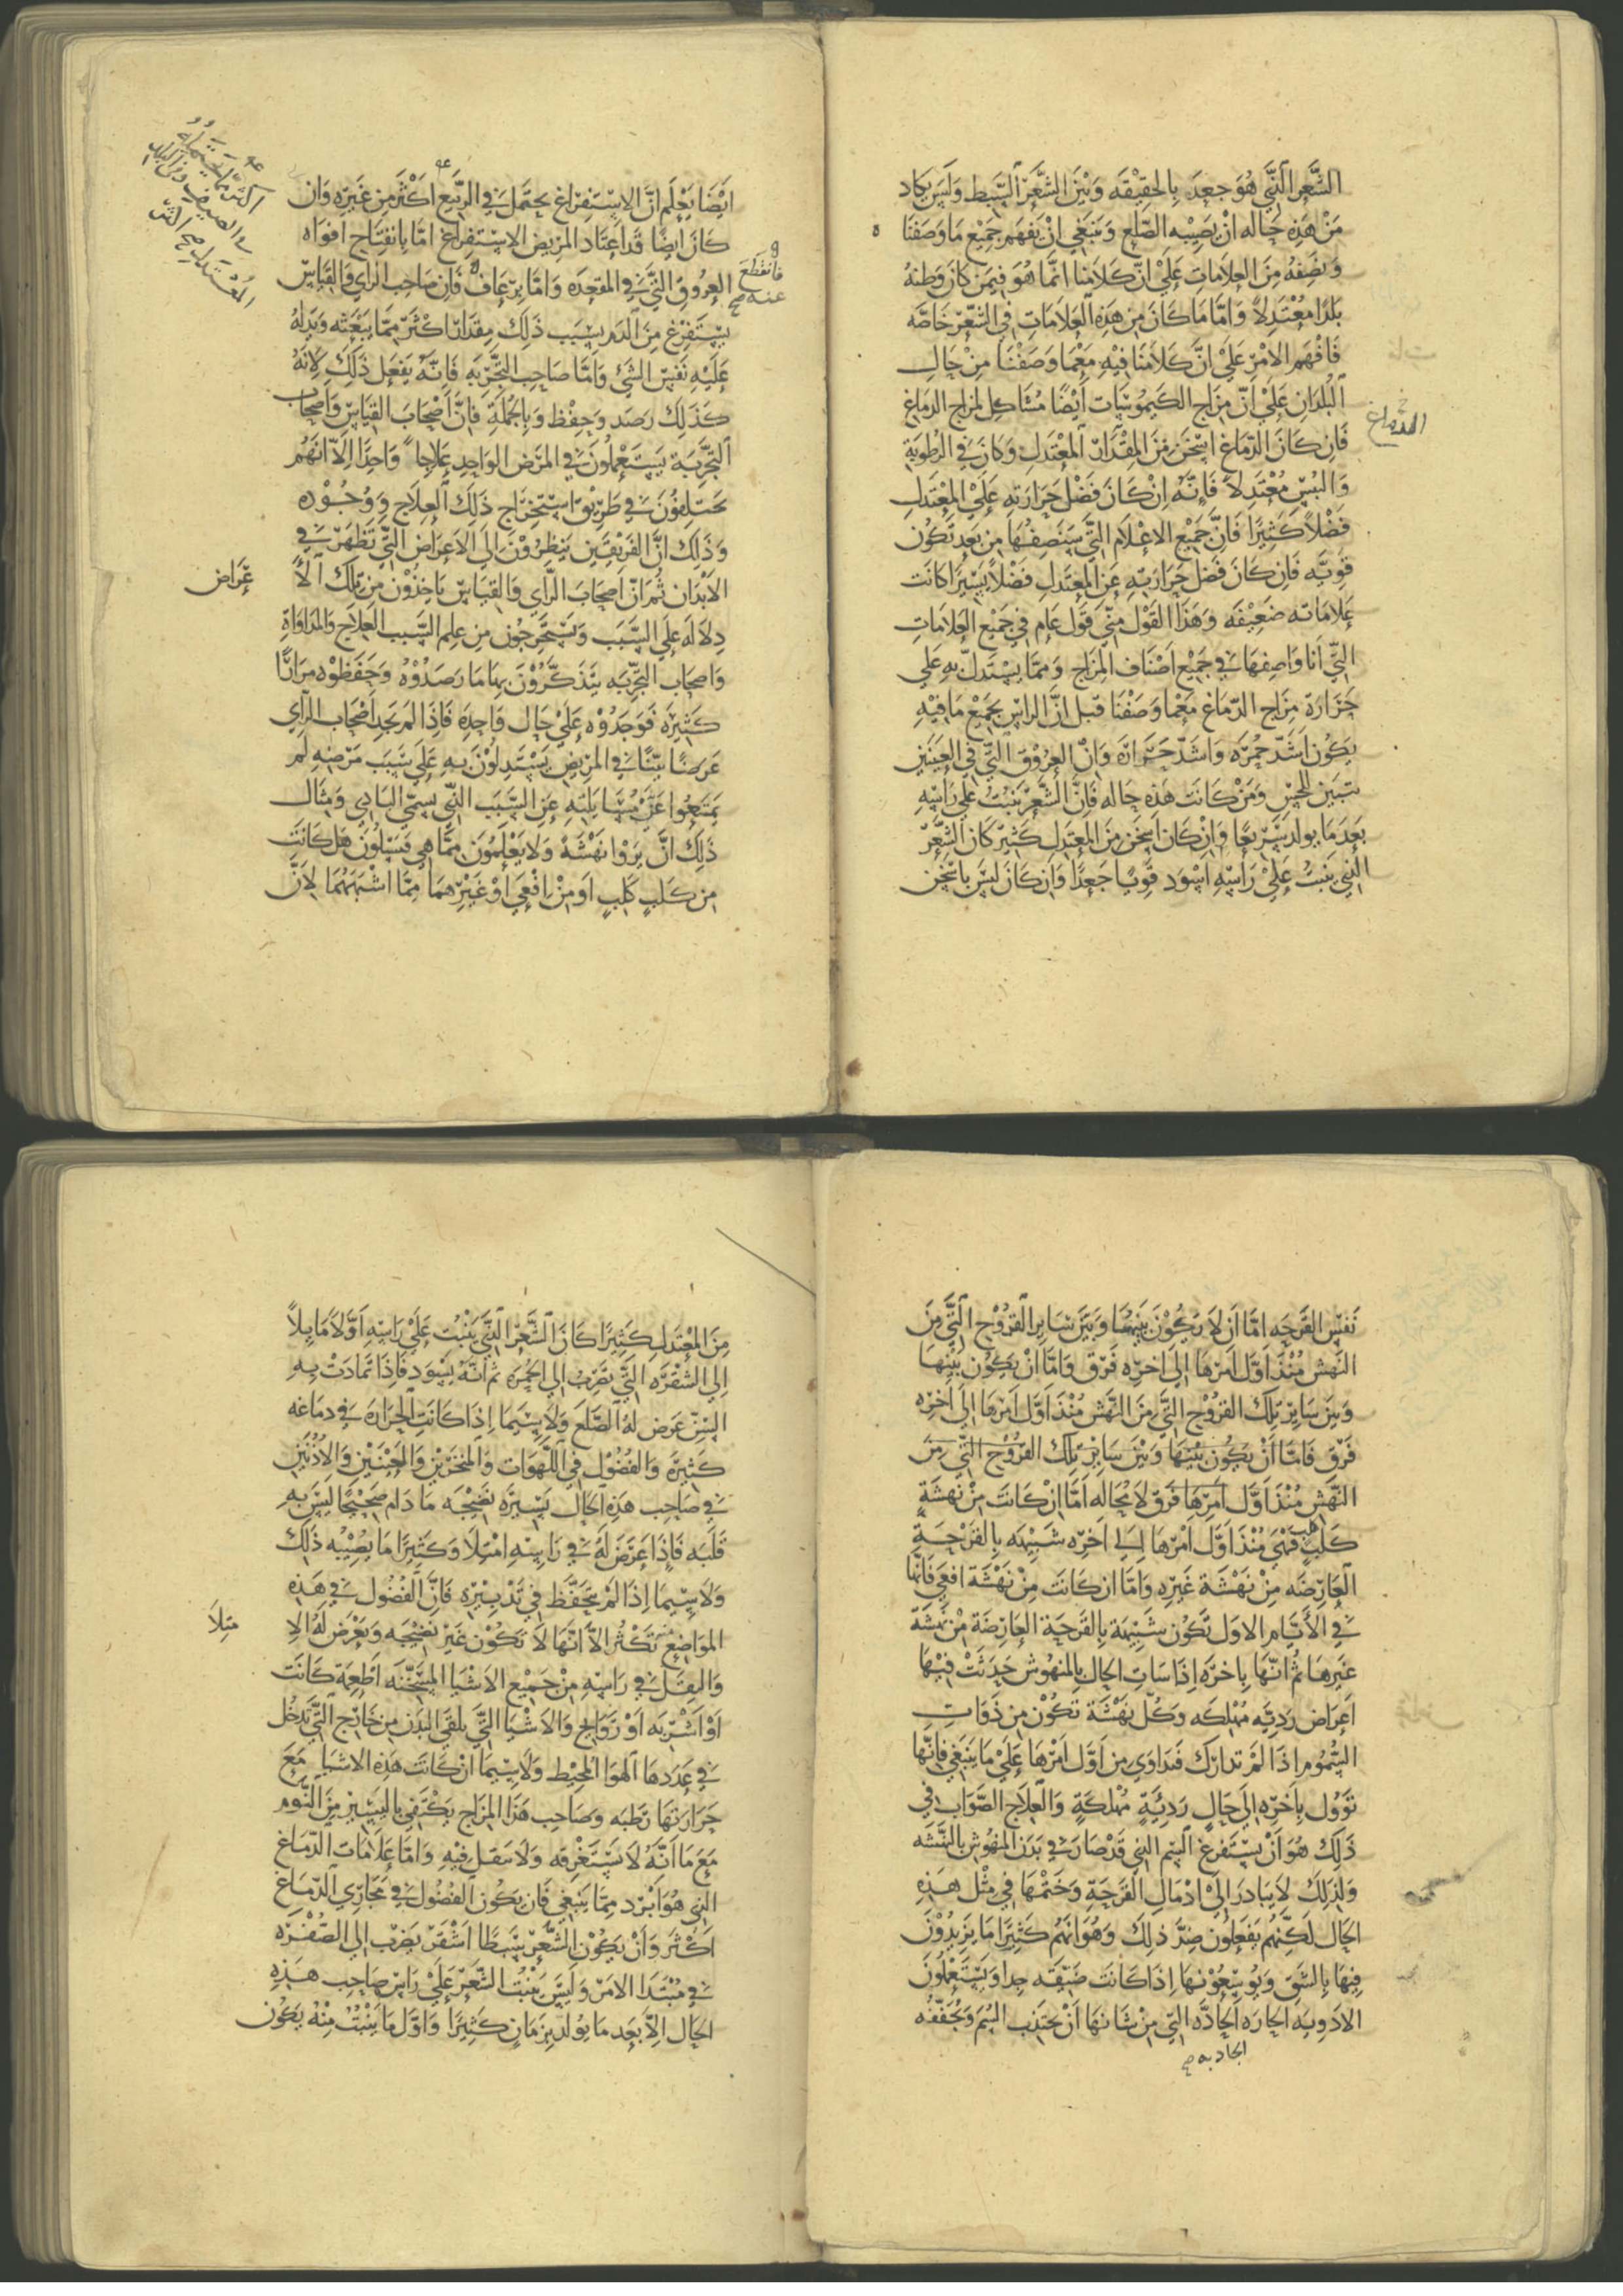 الشَّعر الَّذي هُوَ جعد بالحقيقه وَبَيْنَ الشَّعْر السَّبِط وَلَيس يكاد
مَنْ هَذِهِ حَاله انْ يصيْبه الصّلع وَينبَغي انْ يَفهَم جَمِيْع مَا وَصَفنَا
وَنصِفهُ مِنَ العِلامَات عَلَيْ انّ كَلامَنا انمّا هُوَ فيمَن كانَ وَطنهُ
بَلدًا مُعْتَدِلاً وَامَّا مَا كَانَ مِن هَذِهِ العَلامَاتِ في الشّعْر خَاصَّه
فَافْهَم الامْر عَليْ انَّ كَلاَمَنَا فيْهِ مَعْمَا وَصَفْنَا مِنْ حَالِ
البُلدَانِ عَلِيْ اَنّ مزَاج الكَيمُوسَات اَيْضًا مُشَاكِل لمزاج الدمَاغ
الدّماغ
فَان كَانَ الدّمَاغ اسْخَن مِنَ المقْدَار المعْتَدِل وَكانَ في الرطُوبَة
وَاليُبْس مُعْتَدِلاً فَإنَّهُ اِنْ كَانَ فَضْل حَرَارَتهِ عَلَيْ المعْتَدِلِ
فَضْلاً كَثيرًا فَانَّ جَميْع الاعْلَام التَّي سَنَصِفُهَا مِن بَعد تكُون
قَويَّه فَان كَانَ فَضل حَرَارَتهِ عَن المعتَدِل فَضْلاً يَسِيْرًا كانَت
عَلامَاته ضَعِيْفَه وَهَذَا القَوْل مِنّي قَوْل عَام في جَميْع العَلامَاتِ
التّي اَنا وَاصِفهَا في جَميْع اَصْنَاف المزَاج وَمِمَّا يسْتَدلّ بهِ عَلي
حَرَارَة مِزَاج الدّمَاغ مَعْمَا وَصَفْنَا قبل انَّ الراس بجَميْع مَا فيْهِ
يَكُون اَشَدّ حمْرَه وَاشَدّ حَرَارَه وَانَّ العرُوْق التَّي في العَيْنَيْن
تتَبيّن للحِسّ وَمَنْ كانَتَ هَذهِ حَاله فَانَّ الشَّعْر يَنبُتُ عَلَي رَاسِهِ
بَعدَ مَا يولد سَريعًا وَانْ كان اسخَن منَ المعتِدل كَثيْر كان الشَّعْر
الذي يَنبُتُ عَليْ رَأسِهِ اسْوَد قَويًا جَعدًا وَان كَان لَيسَ باسخَن
ايْضًا يَعْلَم انَّ الاسْتفِرَاغ يحتمل في الرَّبيْع اَكْثَر مِن غَيْرِهِ وَان
كانَ ايضًا قَد اعتَاد المريض الاسْتفراغ امّا بانفتَاح افوَاه
فانقطع
عنه صح
العرُوق التَّي في المقعَدَه وَامَّا برعَاف فَان صَاحب الرأي وَالقيَاس
يسْتَفرغ مِن الدَّم بسَبَب ذَلِك مقدَارًا اكثر ممّا يَبْعَثه وَيَدلهُ
عَلَيْهِ نَفس الشئ وَامَّا صَاحِب التجْرَبَه فَانَّه يَفعَل ذَلَك لاَنهُ
كَذَلِك رَصَد وَحِفْظ وَبالجُملَةِ فَانَّ اصْحَابَ القيَاس وَاصحَاب
التجْرَبَة يَسْتَعْملُونَ في المرَض الوَاحِد عِلاجاً وَاحِدًا اِلاَّ انّهُم
يختلِفُونَ في طَريْق استخِرَاج ذَلَك العِلَاج وَوُجُوْده
وَذَلِك انَّ الفَريْقَيْن يَنظِرُوْنَ اليَ الاَعرَاض التّي تَظهَر في
عَرَاض
الاَبْدَان ثُم انّ اصحَابَ الرَّأي وَالقيَاس يَاخِذُوْن مِن تِلكَ الاَ
دِلاَلَه عَلَي السَّبَب وَيَسْتخْرِجُون مِن عِلم السَّبَب العلاج وَالمدَاوَاةِ
وَاصحاب التجْرِبَه يَتَذكّرُوْنَ بهَا مَا رَصَدُوْهُ وَحَفظوْه مِرَارًا
كَثِيْرَه فَوجَدُوْه عَلَيْ حَال وَاحِدَه فَاذَا لَمْ يَجد اَصْحَاب الرَّأي
عَرضًا بَيّنًا في المريْض يسْتَدِلوْنَ بهِ عَلَي سَبَب مَرَضهِ لَم
يمتَنعُوا عَنْ مُسَايلَتِهِ عَنِ السَّبَب الذّي يسَمّي البَادي وَمثَال
ذَلِك انَّ يَرَوْا نَهْشَةً وَلا يعْلَمُونَ ممَّا هي فَيسَلوُنَ هَل كانَت
مِن كَلب كَلِبٍ اَو مِنْ افْعَي اَوْ غَيْرِهمَا مِمَّا اشبَهَهُمَا لانَّ
نَفسَ القَرحَه امَّا اَن لاَ يَكُوْنَ بَينهَا وَبَيْنَ سَاير القرُوْح التَّي مِنَ
النَهش مُنْذ اَوّل اَمرهَا إلَي اَخرِه فَرْق وَامَّا انْ يَكوُن بَيْنَهَا
وَبَين سَايِر تِلكَ القرُوْح التَّي مِنَ النَّهش مُنْذ اَوّل اَمْرهَا الِي اخِره
فَرْق فَامَّا اَنْ يَكُون بَيْنَهَا وَبَيْنَ سَاير تِلك القرُوْح التَّي مِنَ
النَّهشِ مُنْذ اَوَّل امْرِهَا فَرق لاَ مُحَالَه اَمَّا انْ كانَتَ مِنْ نَهشَةِ
كَلب كلب فَهيَ مُنْذ اَوّل امْرِهَا اِلي اخِره شبيهَه بالقَرْحَةِ
العَارِضَه مِنْ نَهْشَة غَيْره وَامَّا ان كانَت مِنْ نَهْشَة افعَي فَانَّهَا
في الأَيَّامِ الاوَل تَكوُن شَبيْهَة بالقَرحَة العَارضَة مِنْ نَهشَة
غَيرِهَا ثُم انّهَا بِاخرَه اِذَا سَات الحال بالمنهُوش حَدَثَتْ فيْهَا
اَعرَاض رَديّه مُهْلكَه وَكُلّ نَهْشَة تكُوْن مِن ذَوَاتِ
السُّمُوم اِذَا لَمْ تدارَك فَتداوَي مِن اَوَّل اَمْرهَا عَلَيْ مَا يَنبَغي فَانّهَا
تؤوُل بِاخرَه الَي حَالٍ رَدِيَّةٍ مُهْلكَةٍ وَالعِلاَج الصَّوَاب في
ذَلِك هُوَ اَنْ يسْتَفرغ السم الذي قَد صَارَ في بَدَن المنهُوش بالنهَشَه
وَلذَلِكَ لاَ يبَادرَ الَيْ ادْمَالِ القَرحَةِ وَخَتْمهَا في مثْل هَذِهِ
الحَال لَكنّهُم يَفعَلُون ضِدَّ ذَلِكَ وَهُوَ انّهُم كَثيْرًا مَا يَزيدُوْنَ
فيْهَا بالشّقّ وَيُوسِّعُوْنهَا اِذَا كَانَت ضَيّقَه جدا وَيَسْتَعْملُونَ
الادويَه الحارَه الحَادَّه التّي مِنْ شَانهَا اَنْ تجتذب السُم وَتُجفّفه
الجاذبه صح
مِنَ المعْتَدِل كثِيْرًا كَانَ الشَّعْر الذَّي يَنبُت عَلَيْ رَاسِهِ اَوَّلاً مَايلاً
اِلي الشقْرَه التَّي تضْرب الي الحُمرَه ثم انَّهُ يَسْوَد فَاذَا تَمادَتْ بِهِ
السِنّ عَرَض لَهُ الصّلَع وَلاَ سِيَّمَا اِذَا كَانَتِ الحَرَارَه في دمَاغهِ
كَثيْرَه وَالفُضُوْل في اللَّهَوَات وَالمنخرَيْن وَالعَيْنَيْن وَالاُذُنَيْن
في صَاحِب هَذِه الحَال يَسِيْرَه نَضيْجَه مَا دَام صَحيْحًا لَيْسَ بهِ
قَلَبَه فَاذَا عَرَضَ لَهُ في رَاسِهِ امْتلاَ وَكَثيْرًا مَا يُصِيْبُه ذَلكَ
وَلاَ سِيَّمَا اِذَا لَمْ يَتحفَّظ في تَدْبِيْرِه فَانَّ الفُضُول في هَذهِ
متِلاَ
المَوَاضِع تَكْثُر الاَّ انّهَا لاَ تَكُوْن غَيْر نَضِيْجَه وَيَعْرَض لَهُ الاِ
وَالثِقَل في رَاسِهِ مِنْ جَميْع الاَشْيَا المسخّنَه اَطعِمَة كَانَت
اَوْ اَشْربَه اَوْ رَوَايح وَالاشْيَا التَّي يلقَي البَدَن مِن خَارج التَّي يدخُل
في عدَدهَا الهوَا المحِيْط وَلاَ سِيَّمَا انْ كَانَت هَذِهِ الاشيَا مَعَ
حَرَارَتهَا رَطبَه وَصَاحِب هَذا المزَاج يَكتَفي باليَسِيْر مِنَ النّوم
مَعَ مَا انَّهُ لاَ يَسْتَغْرقه وَلاَ يثقل فيْهِ وَامَّا عَلاَمَات الدّمَاغ
الذي هُوَ اَبْرَد مِمَّا يَنْبَغي فَان يَكوُن الفُضُول في مَجَاري الدّمَاغ
اَكثَر وَاَنْ يَكوُن الشَّعْر سَبِطًا اَشْقَر يَضرب الِي الصُّفْرَه
في مُبْتَدا الامْر وَلَيْسَ يَنْبُت الشّعْر عَلَيْ رَاس صَاحب هَذِهِ
الحَال اِلاَّ بَعد مَا يُولَد بزمَان كَثيْرًا وَاوّل مَا يَنْبُت مِنْهُ يَكون